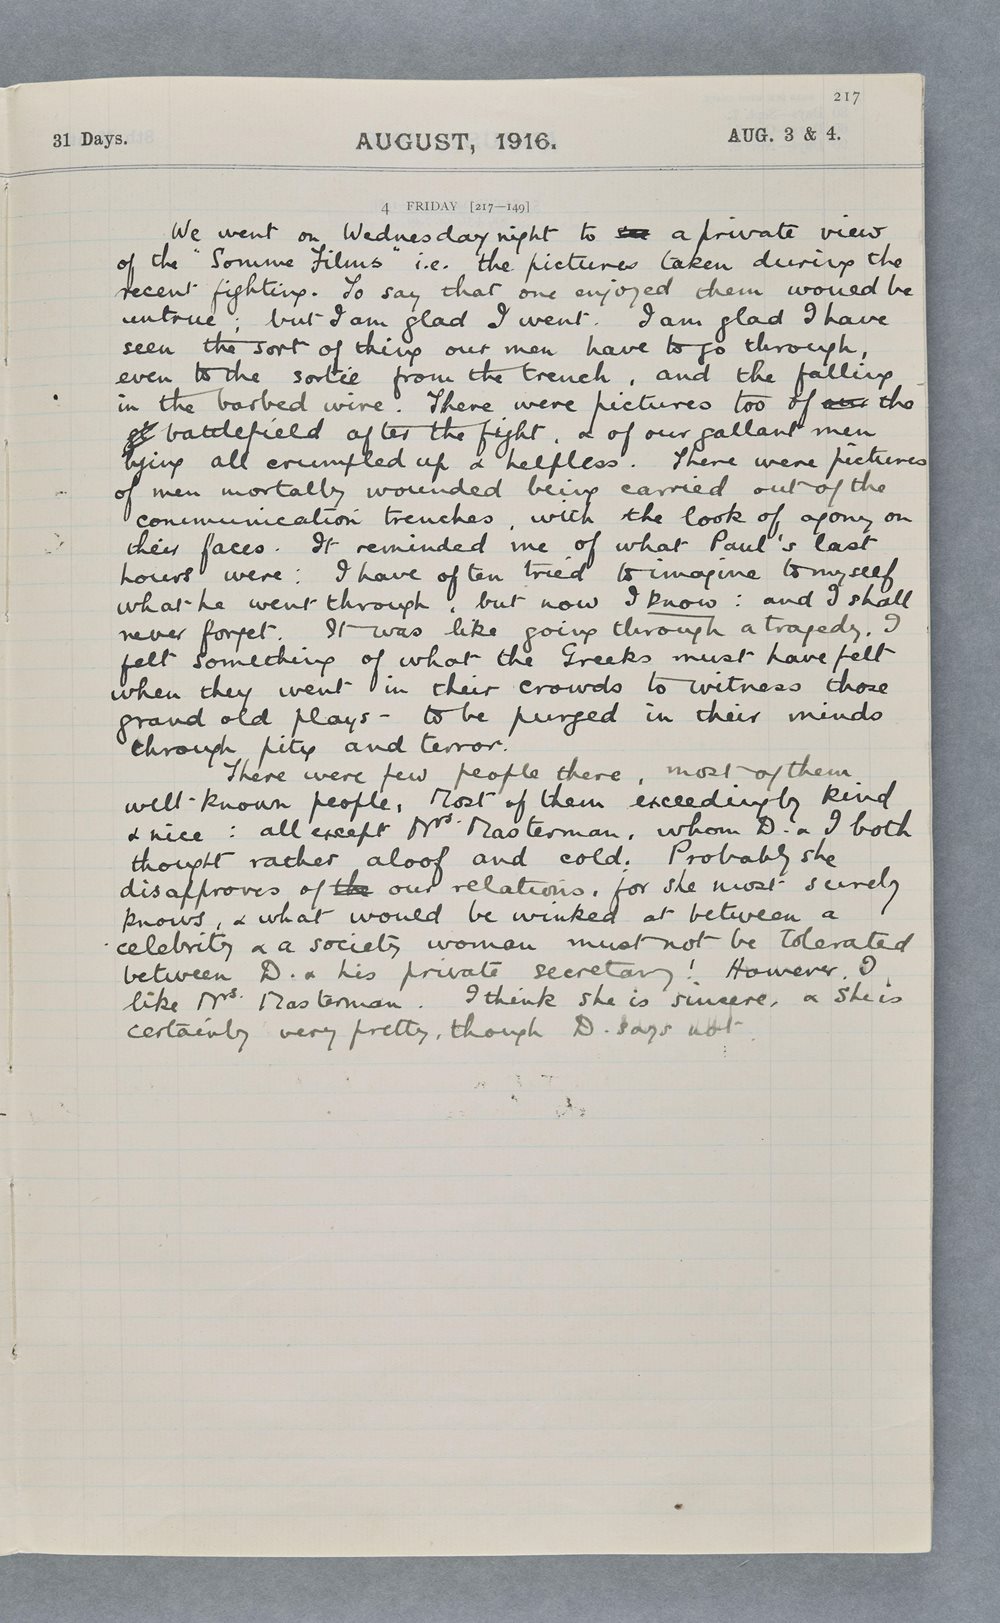 217
31 Days. AUGUST, 1916. AUG. 3 & 4.
4 FRIDAY [217—149]
We went on Wednesday night to a private view
of the "Somme Films" i.e. the pictures taken during the
recent fighting. To say that one enjoyed them would be
untrue; but I am glad I went. I am glad I have
seen the sort of thing our men have to go through,
even to the sortie from the trench, and the falling
in the barbed wire. There were pictures too of our the
battlefield after the fight, & of our gallant men
lying all crumpled up & helpless. There were pictures
of men mortally wounded being carried out of the
communication trenches, with the look of agony on
their faces. It reminded me of what Paul's last
hours were: I have often tried to imagine to myself
what he went through, but now I know: and I shall
never forget. It was like going through a tragedy. I
felt something of what the Greeks must have felt
when they went in their crowds to witness those
grand old plays - to be purged in their minds
through pity and terror.
There were few people there, most of them
well-known people, Most of them exceedingly kind
& nice: all except Mrs. Masterman, whom D. & I both
thought rather aloof and cold. Probably she
disapproves of the our relations, for she most surely
knows, & what would be winked at between a
celebrity & a society woman must not be tolerated
between D. & his private secretary! However, I
like Mrs. Masterman. I think she is sincere, & she is
certainly very pretty, though D. says not.